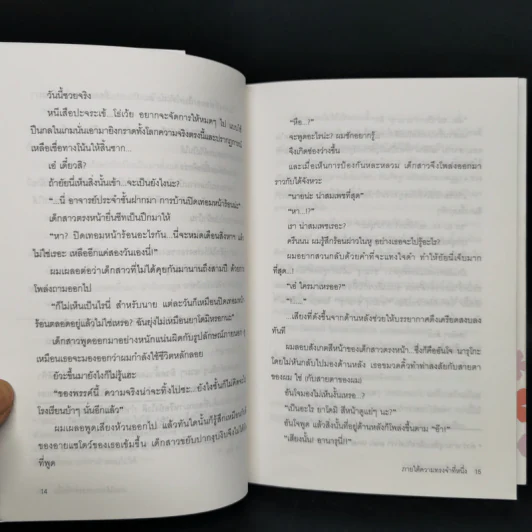 วันนี้ซวยจริง
หนีเสือปะจระเข้...โธ่เว้ย อยากจะจัดการให้หมดๆ ไป
ปืนกลในเกมนั่นเอามายิงกราดทั้งโลกความจริงตรงนี้และปรากฏการณ์
เหลือเชื่อทางโน้นให้สิ้นซาก...
เอ๋ เดี๋ยวสิ?
ถ้ายัยนี่เห็นสิ่งนั้นเข้า...จะเป็นยังไงน่ะ?
"...นี่ อาจารย์ประจำชั้นฝากมา การบ้านปิดเทอมหน้าร้อนน่ะ"
เด็กสาวตรงหน้ายื่นชีทเป็นปึกมาให้
"หา? ปิดเทอมหน้าร้อนอะไรกัน...นี่จะหมดเดือนสิงหาฯ แล้ว
ไม่ใช่เรอะ เหลืออีกแค่สองวันเองนี่!"
ผมเผลอต่อว่าเด็กสาวที่ไม่ได้คุยกันมานานถึงสามปี ด้วยการ
โพล่งถามออกไป
"ก็ไม่เห็นเป็นไรนี่ สำหรับนาย แต่ละวันก็เหมือนปิดเทอมหน้า
ร้อนตลอดอยู่แล้วไม่ใช่เหรอ?
เด็กสาวพูดออกมาอย่างหนักแน่นผิดกับรูปลักษณ์ภายนอก
เหมือนเธอจะมองออกว่าผมกำลังใช้ชีวิตหลักลอย
ยัวะขึ้นมายังไงก็ไม่รู้แฮะ
"ของพรรค์นี้ ความจริงน่าจะทิ้งไปซะ...ยังไงชั้นก็ไม่คิดจะไป
โรงเรียนบ้าๆ นั่นอีกแล้ว"
ผมเผลอพูดเสียงห้วนออกไป แล้วทันใดนั้นก็รู้สึกเหมือน
ของอายแชโดว์ของเธอเข้มขึ้น เด็กสาวขยับปากธุบงึมงำ
ที่พูด
14
"หือ...?"
จะพูดอะไรน่ะ? ผมชักอยากรู้...
จึงเกิดช่องว่างขึ้น
และเมื่อเห็นการป้องกันหละหลวม เด็กสาวจึงโพล่งออกมา
ราวกับได้จังหวะ
"นายน่ะ น่าสมเพชที่สุด"
"หา...!?"
เรา น่าสมเพชเรอะ?
ครับนบ ผมรู้สึกร้อนผ่าวในหู อย่างเธอจะไปรู้อะไร?
ผมอยากสวนกลับด้วยคำที่จะแทงใจดำ ทำให้ยัยนี่เจ็บมาก
ที่สุด...!
"เฮ้ ใครมาเหรอฮะ?"
"!...."
...เสียงที่ดังขึ้นจากด้านหลังช่วยให้บรรยากาศตึงเครียดสงบลง
ทันที
ผมลอบสังเกตสีหน้าของเด็กสาวตรงหน้า...ซึ่งก็คืออันโจ นารุโกะ
โดยไม่หันกลับไปมองด้านหลัง เธอขมวดคิ้วทำท่าสงสัยกับสายตา
ของผม ใช่ (กับสายตาของผม)
อันโจมองไม่เห็นนั้นเหรอ...?
"เป็นอะไร ยาโดมิ สีหน้าดูแย่ๆ นะ?"
อันโจพูด แล้วสิ่งนั้นที่อยู่ด้านหลังก็โพล่งขึ้นตาม "อ๊า!"
"เสียงนั้น! อานารุนี่!"
ภายใต้ความทรงจำที่หนึ่ง 15